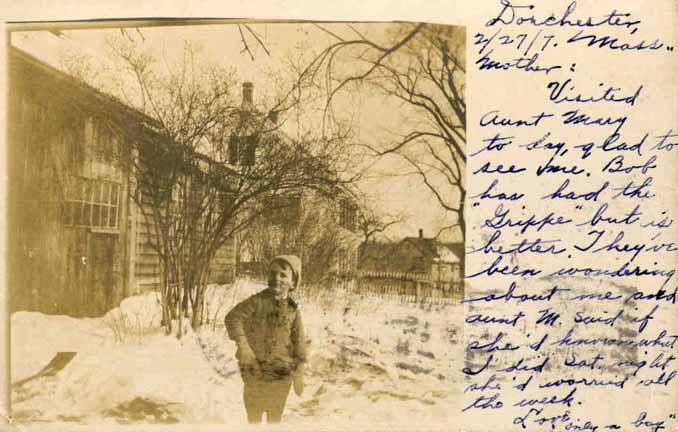 Dorchester,
2/27/7. Mass.
Mother:
Visited
Aunt Mary
to day, glad to
see me. Bob
has had the
"Grippe" but is
better. They've
been wondering
about me and
aunt M. said if
she'd known what
I did Sat. night
she'd worried all
the week.
Love "only a boy"